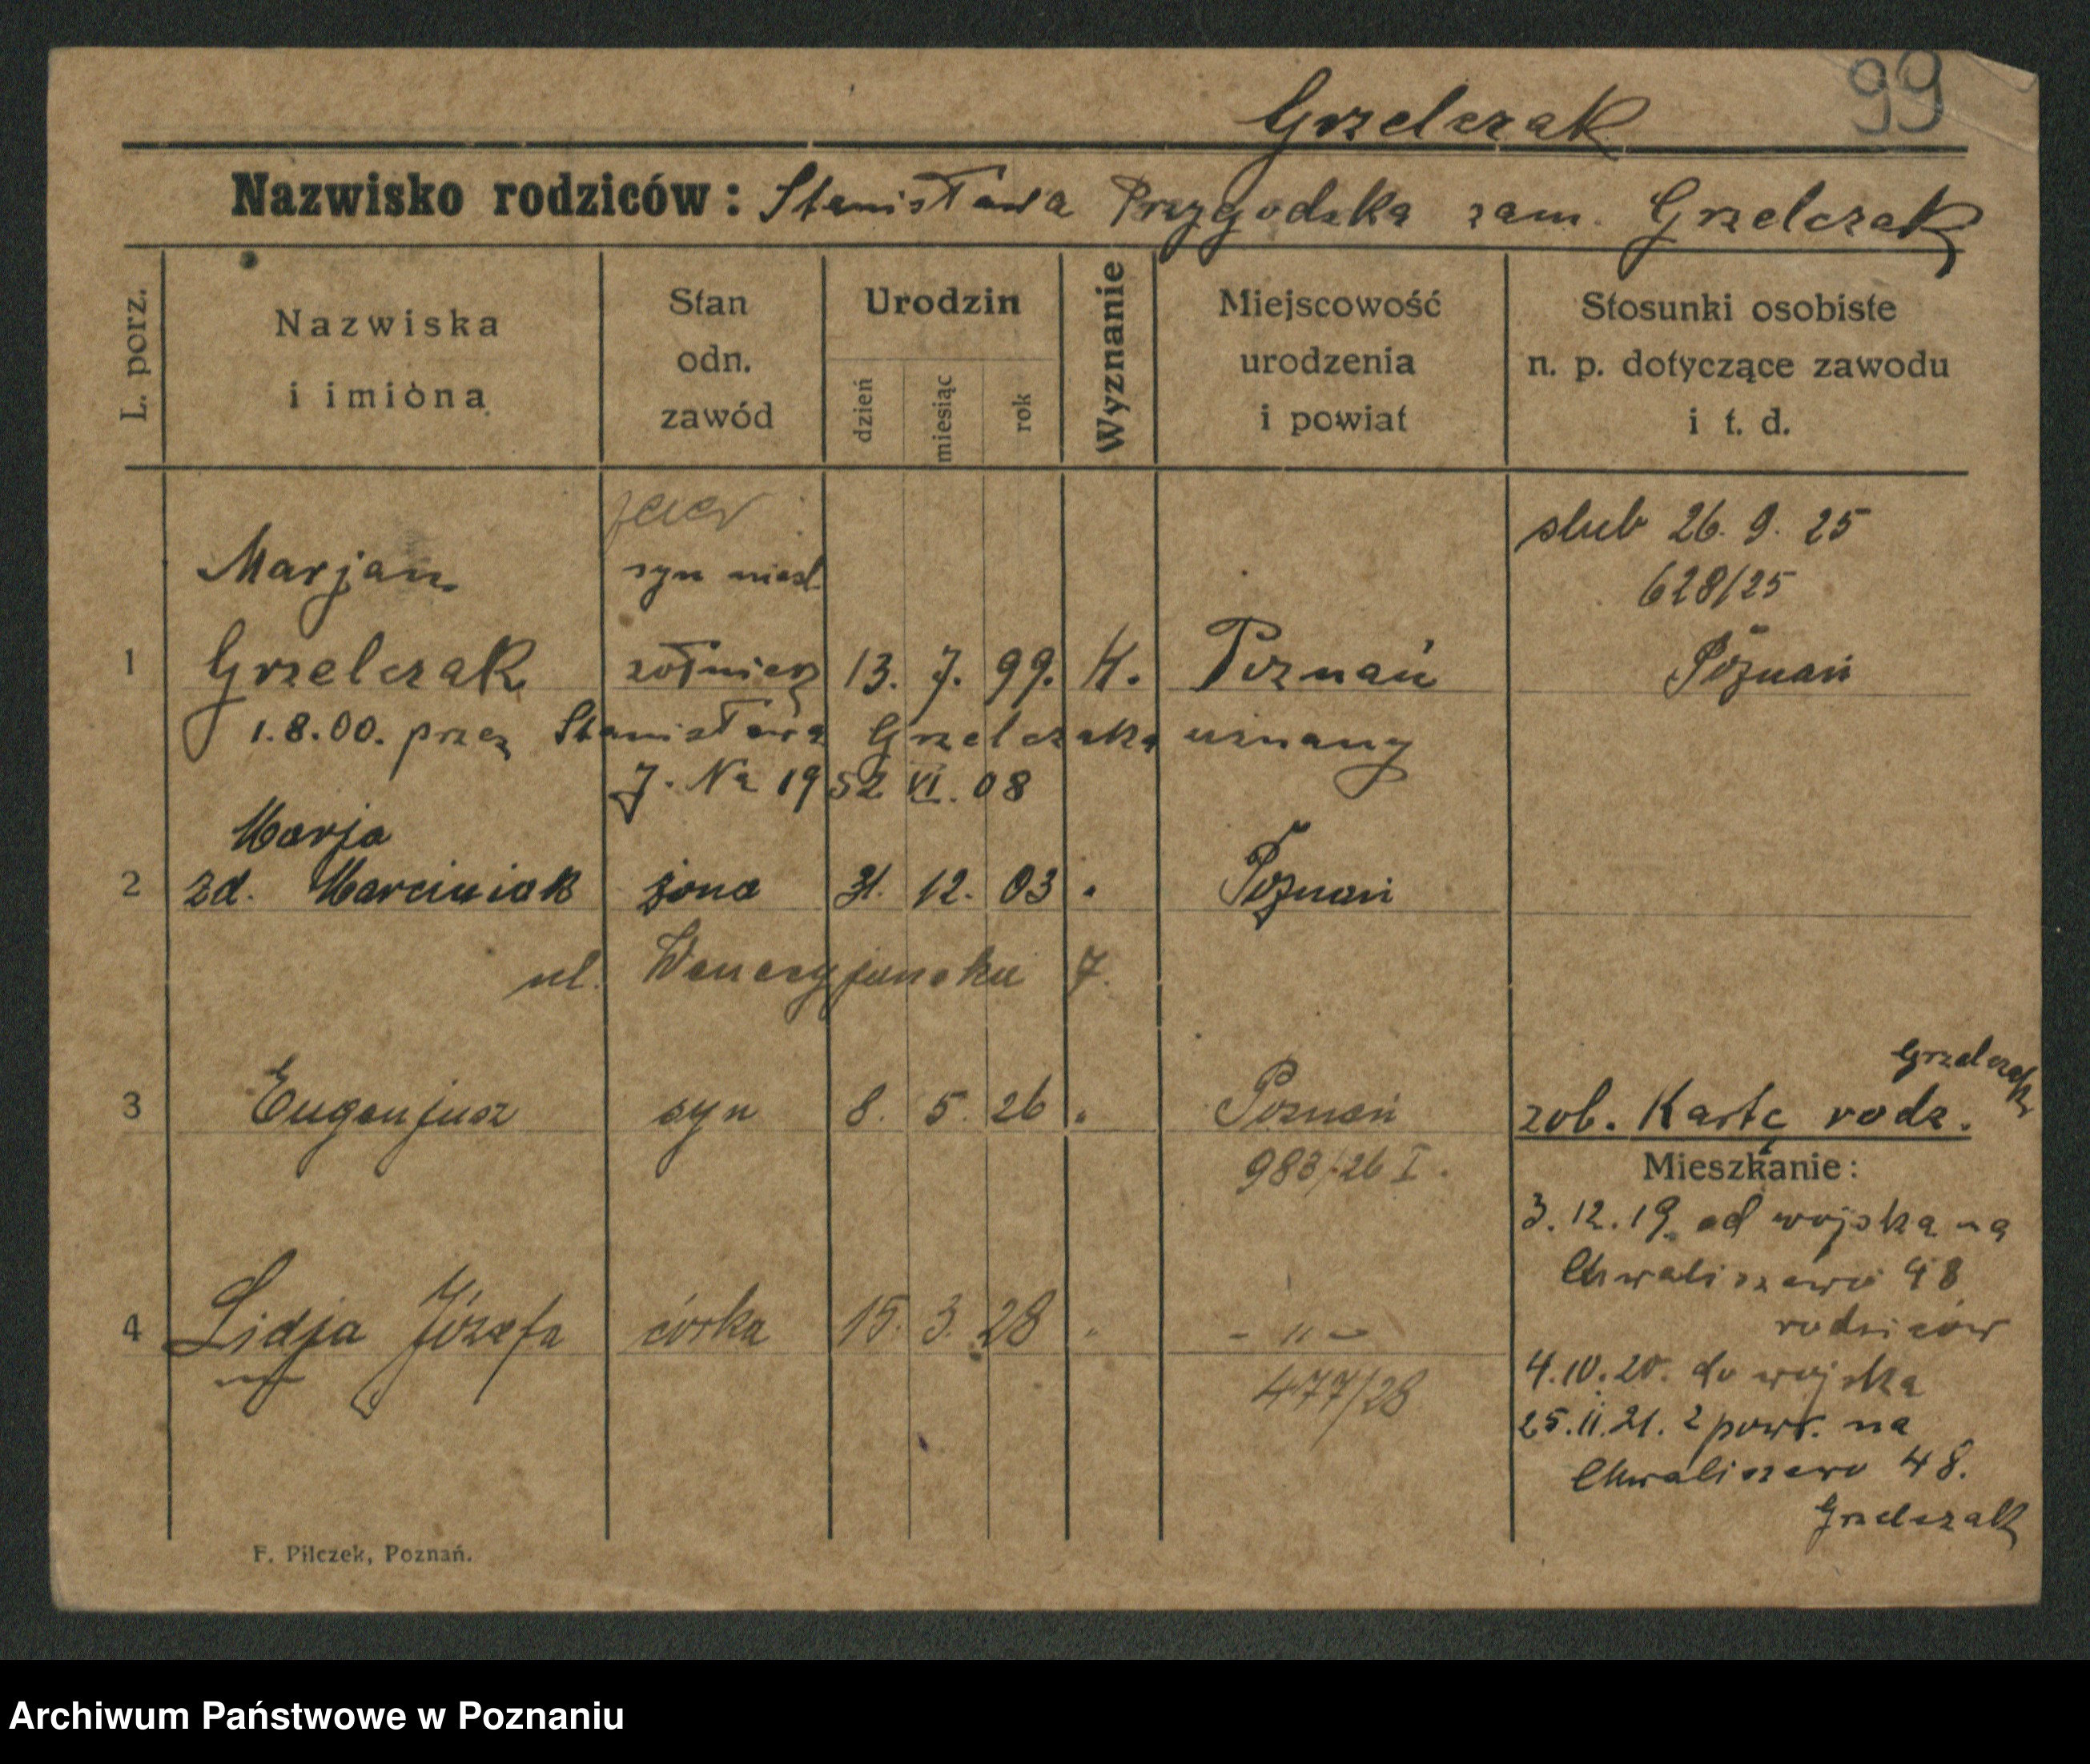 99
Grzelczak
Nazwisko rodziców: Stanisława Przygodzka zam. Grzelczak
L. porz.
Nazwiska i imiona
Stan odn. zawód
Urodzin
dzień miesiąc rok
Wyznanie
Miejscowość urodzenia i powiat
Stosunki osobiste n. p. dotyczące zawodu i t. d.
syn nieśl.
Marjan
ślub 26. 9. 25
628/25
1 Grzelczak żołnierz 13. 7. 99. K. Poznań Poznań
1.8.00. przez Stanisława Grzelczaka uznany
J. Na 1952 VI. 08
Marja
2 zd. Marciniak żona 31. 12. 03 " Poznań
ul. Wenecyjańska 7.
Grzelczak
3 Eugenjusz syn 8. 5. 26 " Poznań zob. Kartę rodz.
983/26 I.
4 Lidja Józefa córka 15. 3. 28 " - " -
477/28
Mieszkanie:
3.12.19. od wojska na
Chwaliszewo 48
rodziców
4.10.20. do wojska
25.II.21. z powr. na
Chwaliszewo 48.
Grzelczak
F. Pilczek, Poznań.
Archiwum Państwowe w Poznaniu